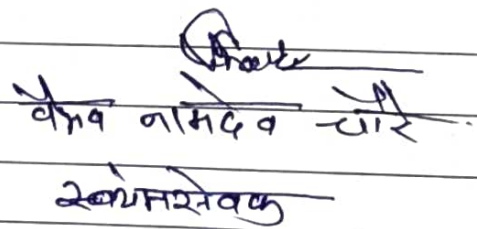 वैभव नामदेव चौरे
स्वयंमसेवक